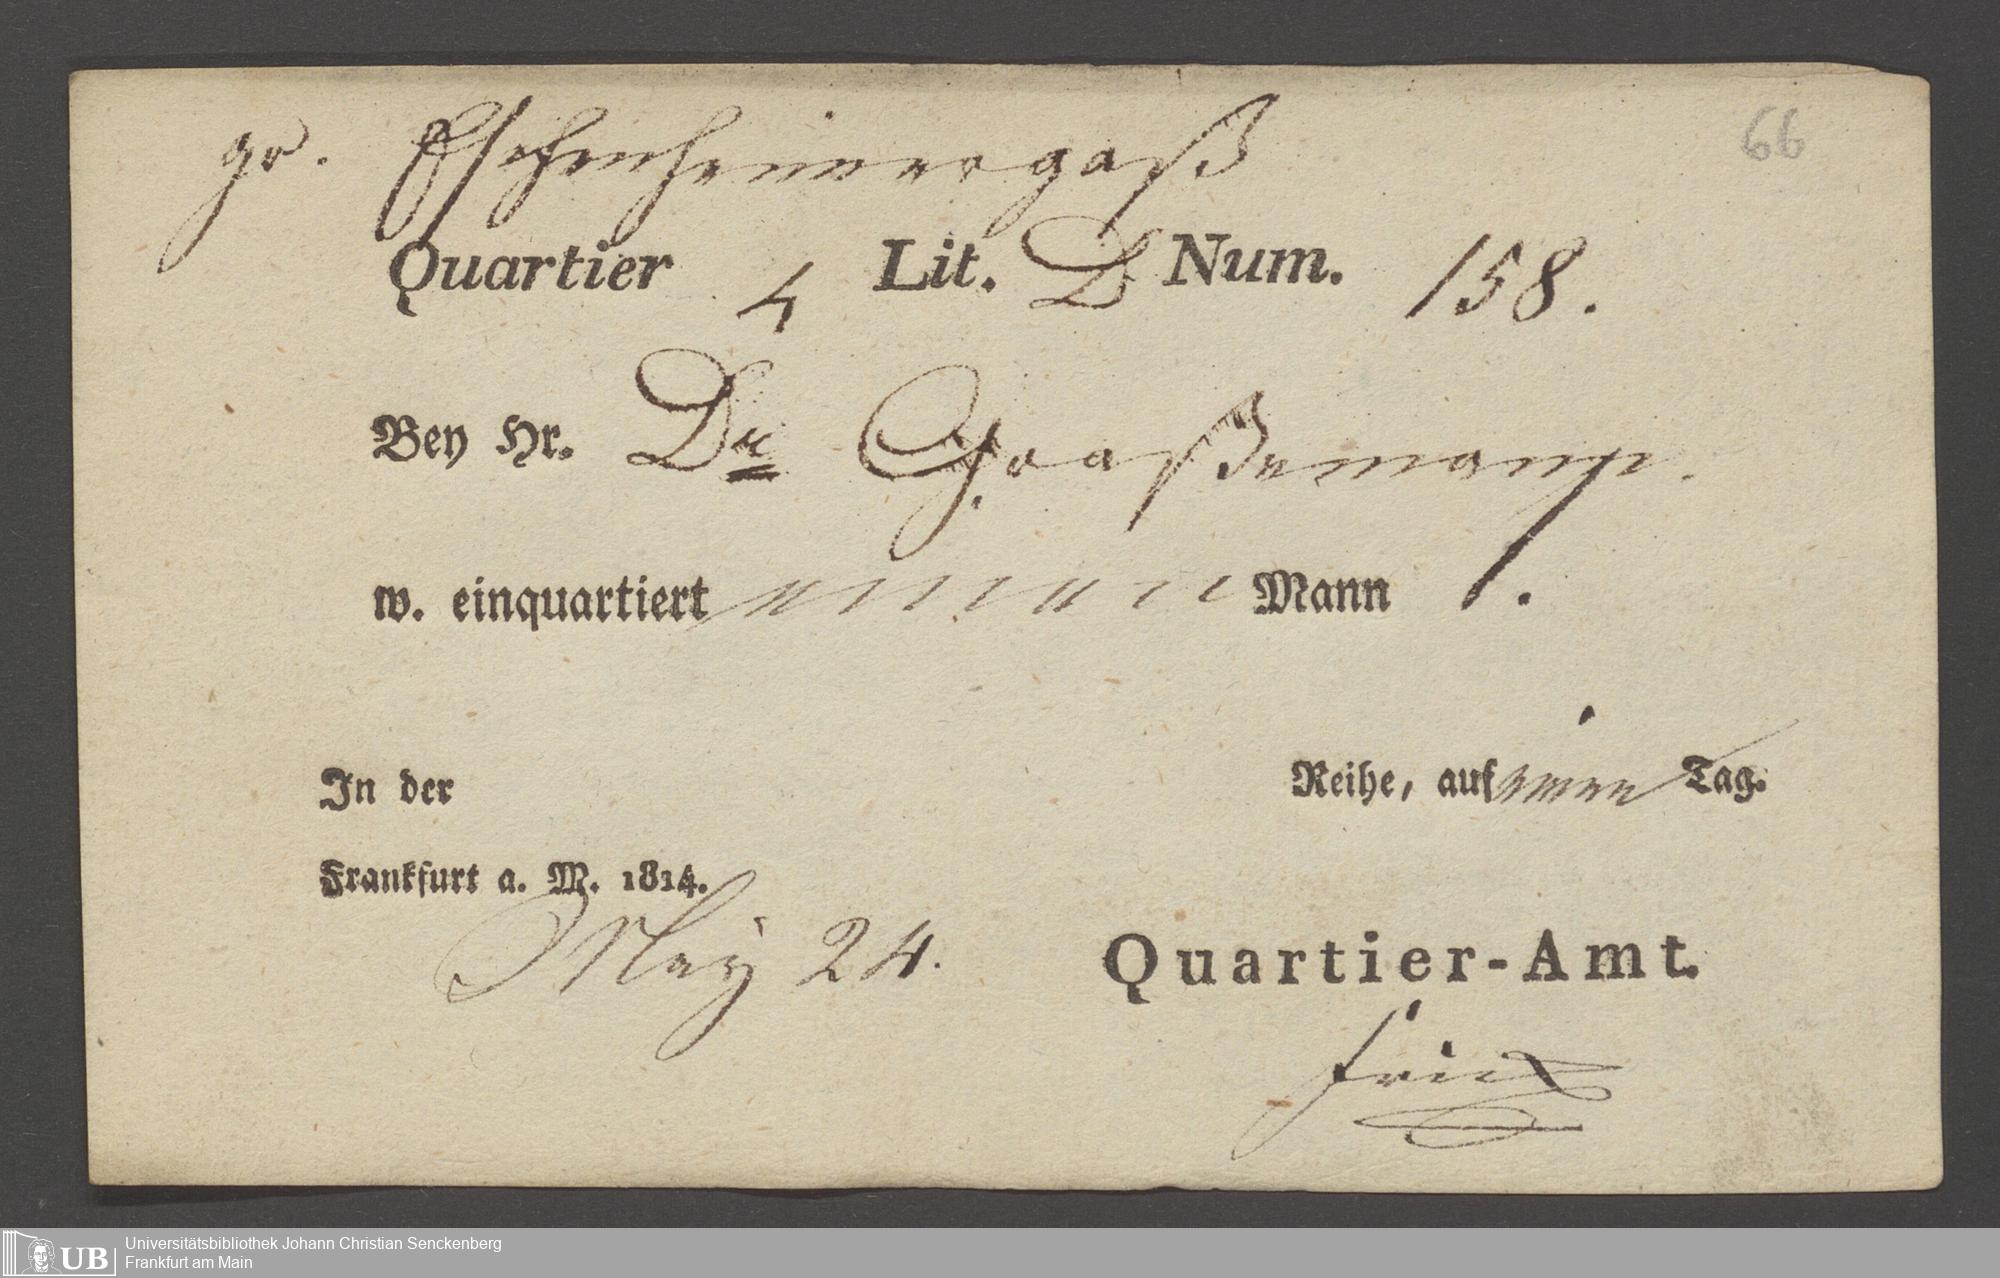 66
gr. Eschenheimergaß
Quartier 4 Lit. D Num. 158.
Bey Hr. Dr
w. einquartiert Mann 1.
In der Reihe, auf einen Tag.
Frankfurt a. M. 1814.
May 24.
Quartier-Amt.
UB Universitätsbibliothek Johann Christian Senckenberg
Frankfurt am Main